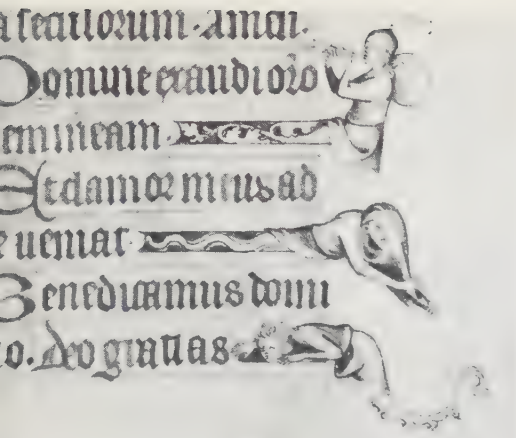 a seculorum. amen.
Domine exaudi oro
nem meam.
Et clamor meus ad
te veniat
Benedicamus domi
no. Deo gratias